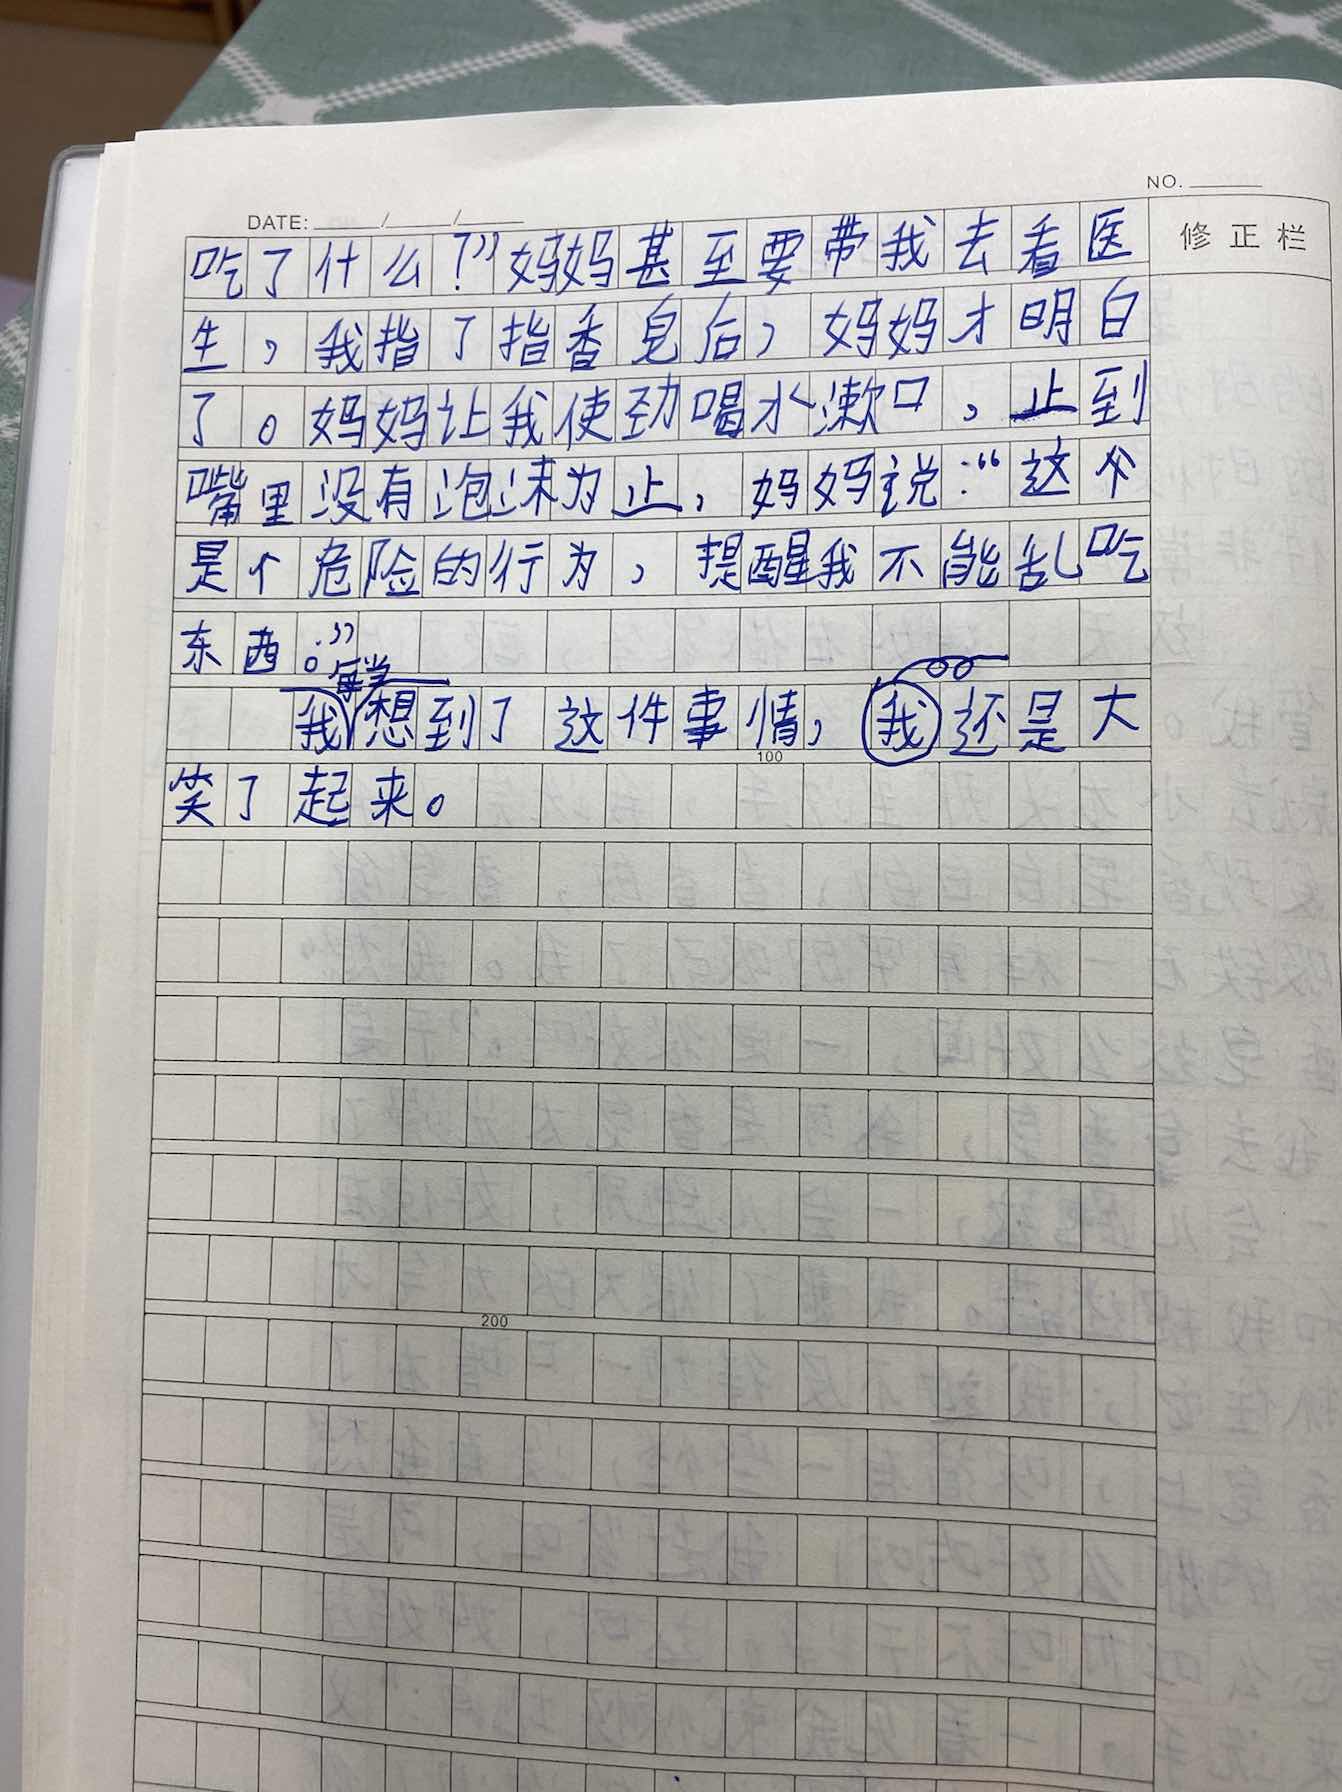 NO.
DATE: / /
修正栏
吃了什么?”妈妈甚至要带我去看医
生，我指了指香皂后，妈妈才明白
了。妈妈让我使劲喝水漱口，止到
嘴里没有泡沫为止，妈妈说：“这个
是个危险的行为，提醒我不能乱吃
东西。”
每当
我想到了这件事情，我还是大
100
笑了起来。
200